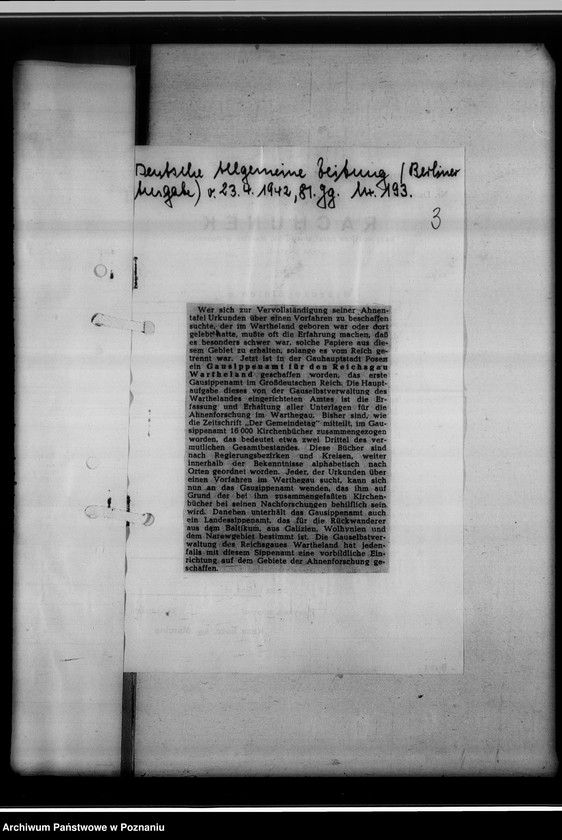 Deutsche Allgemeine Zeitung (Berliner
Ausgabe) v. 23.4.1942, 81. Jg. Nr. 193.
3
RACHUNEK
Wer sich zur Vervollständigung seiner Ahnen-
tafel Urkunden über einen Vorfahren zu beschaffen
suchte, der im Wartheland geboren war oder dort
gelebt hatte, mußte oft die Erfahrung machen, daß
es besonders schwer war, solche Papiere aus die-
sem Gebiet zu erhalten, solange es vom Reich ge-
trennt war. Jetzt ist in der Gauhauptstadt Posen
ein Gausippenamt für den Reichsgau
Wartheland geschaffen worden, das erste
Gausippenamt im Großdeutschen Reich. Die Haupt-
aufgabe dieses von der Gauselbstverwaltung des
Warthelandes eingerichteten Amtes ist die Er-
fassung und Erhaltung aller Unterlagen für die
Ahnenforschung im Warthegau. Bisher sind, wie
die Zeitschrift „Der Gemeindetag" mitteilt, im Gau-
sippenamt 16 000 Kirchenbücher zusammengezogen
worden, das bedeutet etwa zwei Drittel des ver-
mutlichen Gesamtbestandes. Diese Bücher sind
nach Regierungsbezirken und Kreisen, weiter
innerhalb der Bekenntnisse alphabetisch nach
Orten geordnet worden. Jeder, der Urkunden über
einen Vorfahren im Warthegau sucht, kann sich
nun an das Gausippenamt wenden, das ihm auf
Grund der bei ihm zusammengefaßten Kirchen-
bücher bei seinen Nachforschungen behilflich sein
wird. Daneben unterhält das Gausippenamt auch
ein Landessippenamt, das für die Rückwanderer
aus dem Baltikum, aus Galizien, Wolhynien und
dem Narewgebiet bestimmt ist. Die Gauselbstver-
waltung des Reichsgaues Wartheland hat jeden-
falls mit diesem Sippenamt eine vorbildliche Ein-
richtung auf dem Gebiete der Ahnenforschung ge-
schaffen.
Archiwum Państwowe w Poznaniu